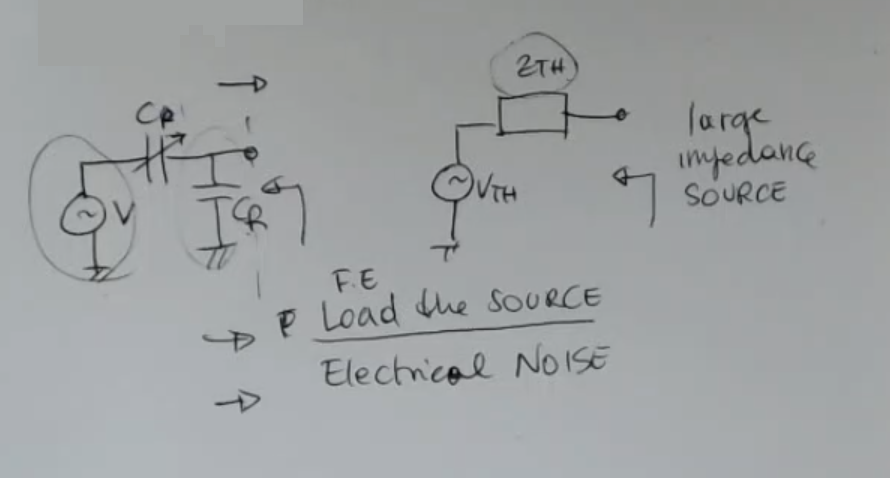 CR
V
CR
ZTH
VTH
large
impedance
SOURCE
F.E
Load the SOURCE
Electrical NOISE